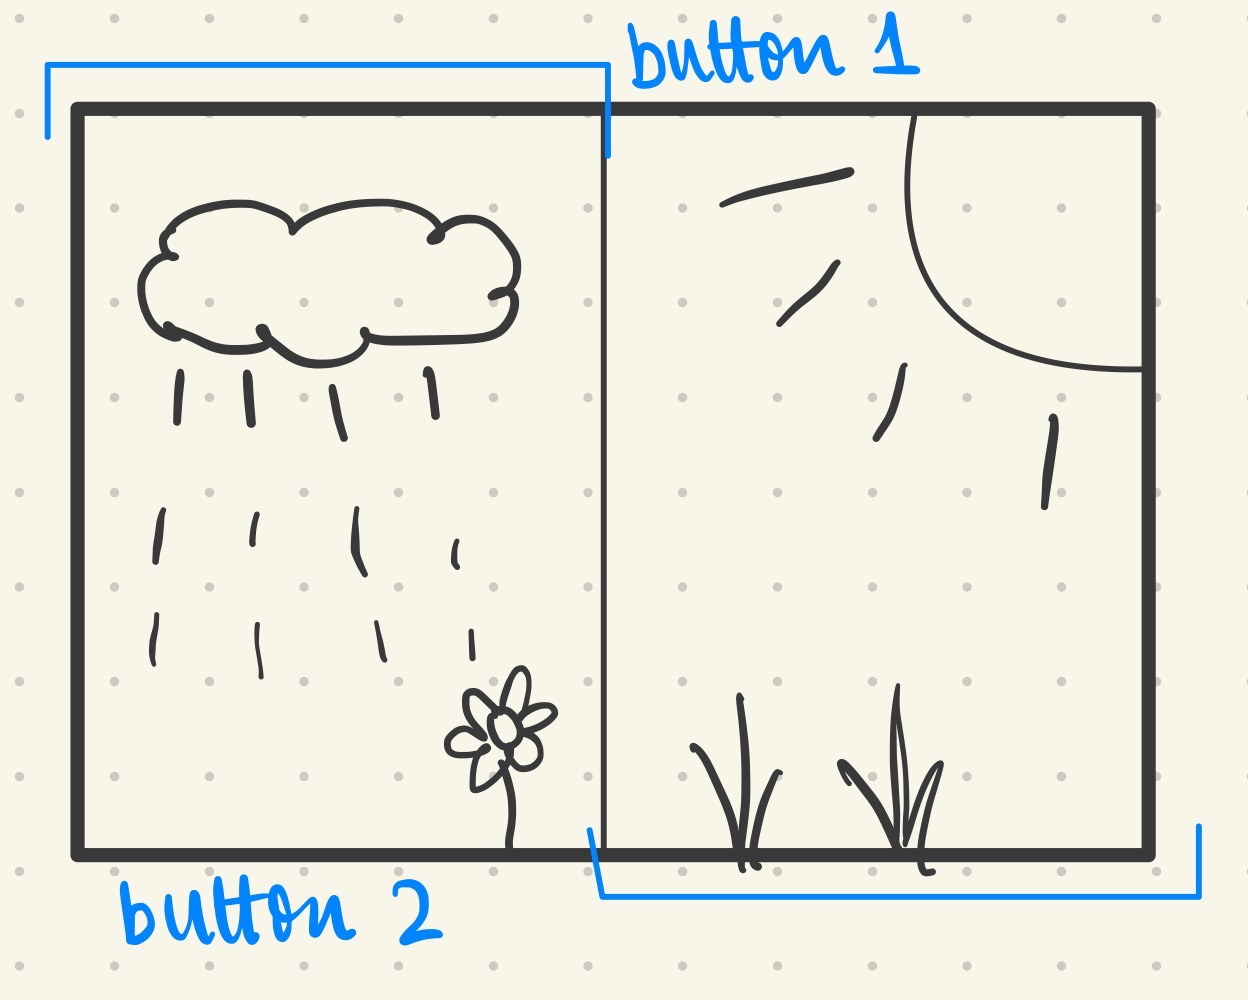 button 1
button 2